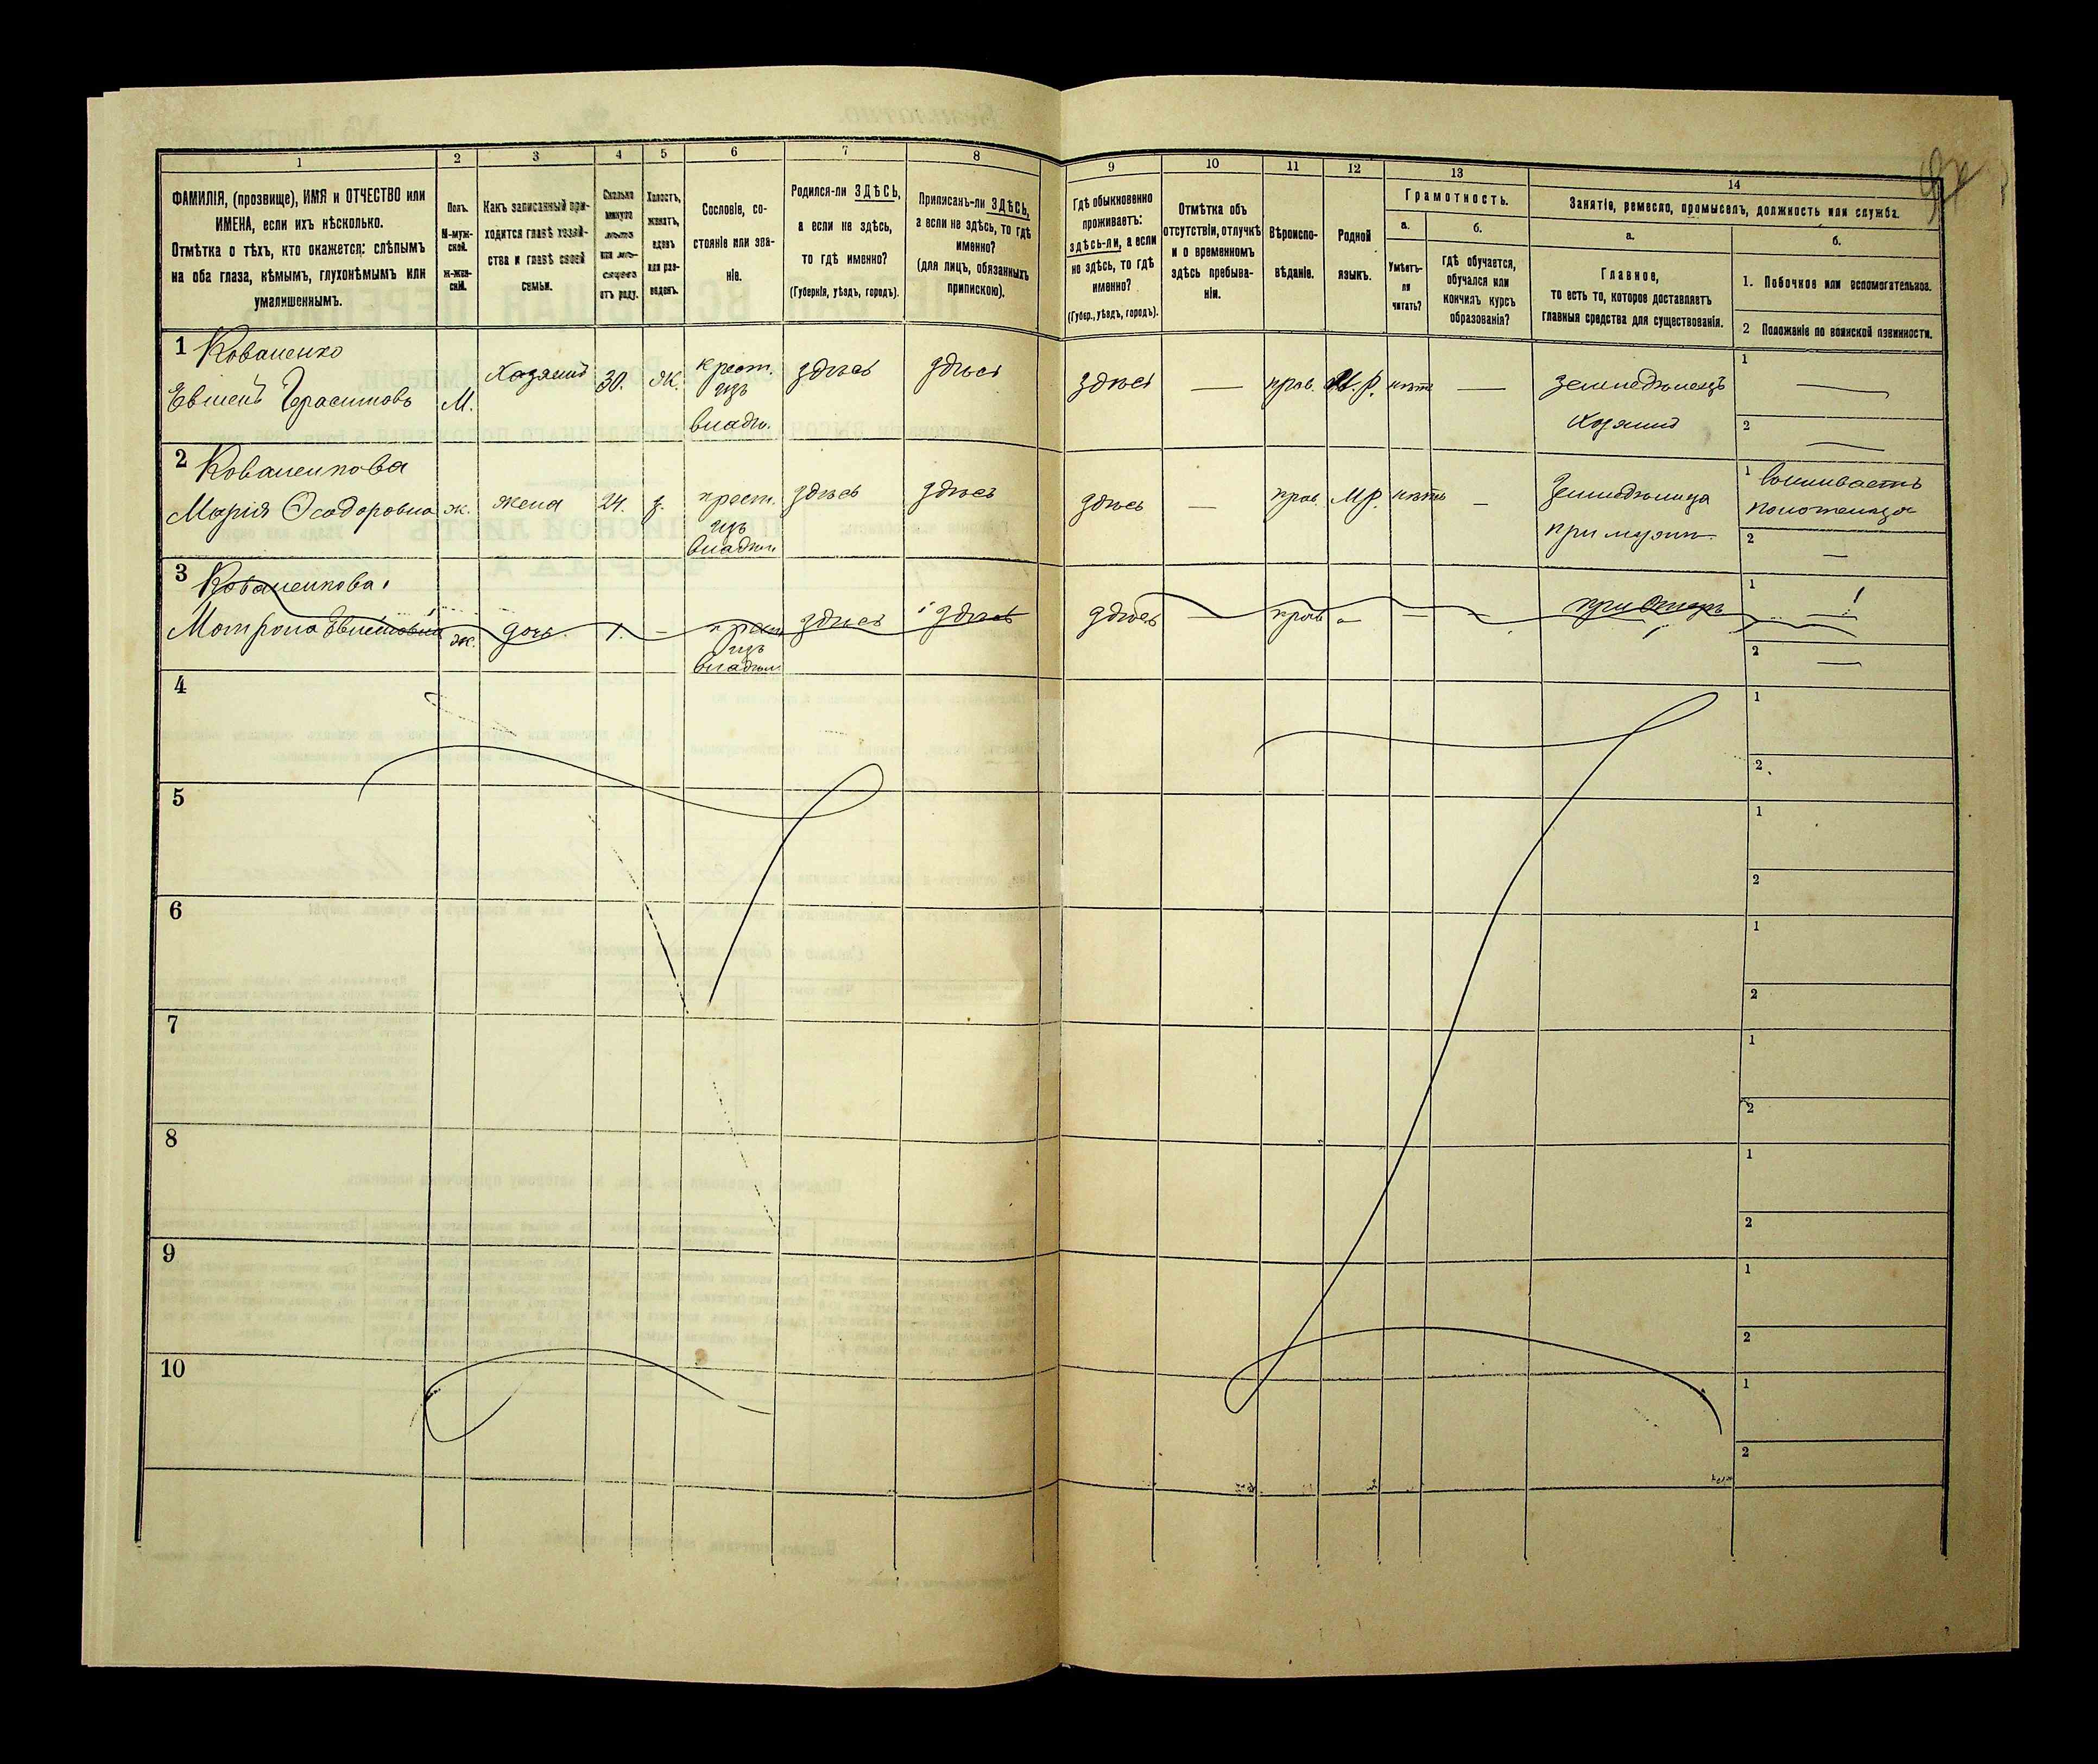 1
2
3
4
5
6
7
8
9
10
11
12
13
14
ФАМИЛІЯ, (прозвище), ИМЯ и ОТЧЕСТВО или
ИМЕНА, если ихъ нѣсколько.
Отмѣтка о тѣхъ, кто окажется: слѣпымъ
на оба глаза, нѣмымъ, глухонѣмымъ или
умалишеннымъ.
Полъ.
М-муж-
ской.
ж-жен-
скій.
Какъ записанный при-
ходится главѣ хозяй-
ства и главѣ своей
семьи.
Сколько
минуло
лѣтъ
или мѣ-
сяцевъ
отъ роду.
Холостъ,
женатъ,
вдовъ
или раз-
веденъ.
Сословіе, со-
стояніе или зва-
ніе.
Родился-ли ЗДѢСЬ,
а если не здѣсь,
то гдѣ именно?
(Губернія, уѣздъ, городъ).
Приписанъ-ли ЗДѢСЬ,
а если не здѣсь, то гдѣ
именно?
(для лицъ, обязанныхъ
припискою).
Гдѣ обыкновенно
проживаетъ:
здѣсь-ли, а если
не здѣсь, то гдѣ
именно?
(Губер., уѣздъ, городъ).
Отмѣтка объ
отсутствіи, отлучкѣ
и о временномъ
здѣсь пребыва-
ніи.
Вѣроиспо-
вѣданіе.
Родной
языкъ.
Грамотность.
а.
Умѣетъ-
ли
читать?
б.
гдѣ обучается,
обучался или
кончилъ курсъ
образованія?
Занятіе, ремесло, промыселъ, должность или служба.
а.
Главное,
то есть то, которое доставляетъ
главныя средства для существованія.
б.
1. Побочное или вспомогательное.
2 Положеніе по воинской повинности.
1 Коваленко
Евменъ Герасимовъ
М.
Хозяинъ
30.
Ж.
крест.
изъ
владѣл.
здѣсь
здѣсь
здѣсь
—
прав.
М.Р.
нѣтъ
—
земледѣлецъ
хозяинъ
1 —
2 —
2 Коваленкова
Марія Ѳеодоровна
ж.
жена
24.
з.
крест.
изъ
владѣл.
здѣсь
здѣсь
здѣсь
—
прав.
М.Р.
нѣтъ
—
Земледѣлица
при мужѣ
1
2 —
3 Коваленкова
Мотрона Евменовна
ж.
дочь.
1.
—
крест.
изъ
владѣл.
здѣсь
здѣсь
здѣсь
—
прав.
—
—
при отцѣ
1
2 —
4
1
2
5
1
2
6
1
2
7
1
2
8
1
2
9
1
2
10
1
2